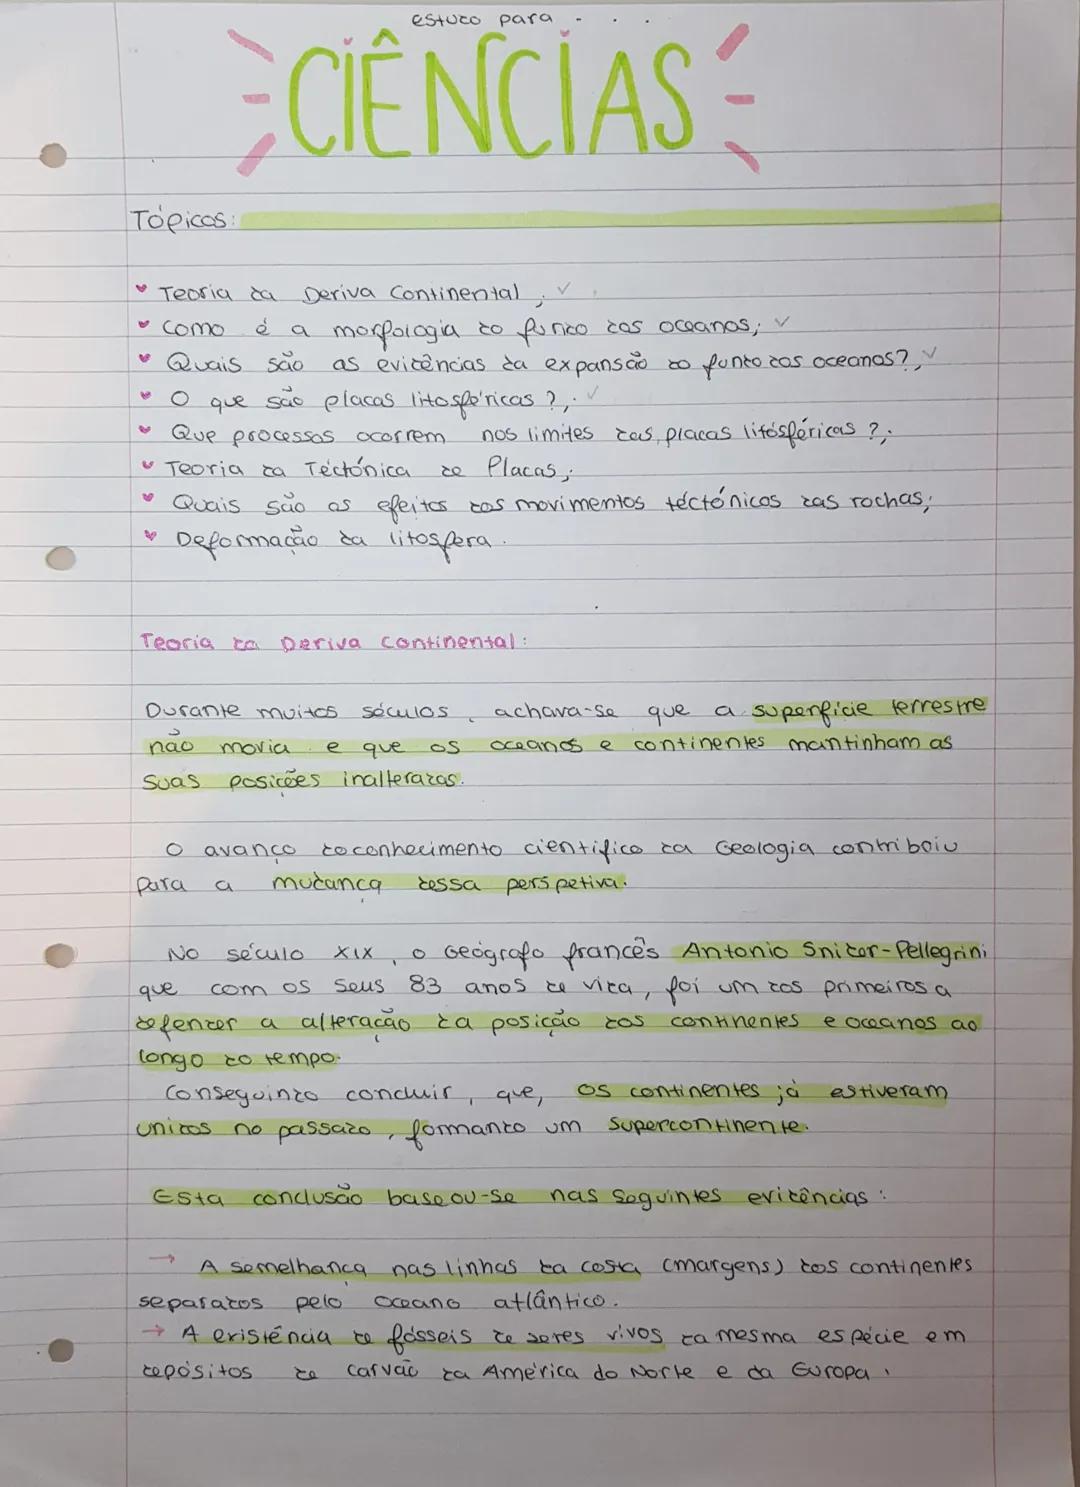 estudo para - . . .
CIÊNCIAS
Tópicos:
Teoria da Deriva Continental; ✓
Como é a morfologia do fundo dos oceanos; ✓
Quais são as evidências da expansão do fundo dos oceanos?; ✓
O que são placas litosféricas?; ✓
Que processos ocorrem nos limites das placas litósféricas?;
Teoria da Téctónica de Placas;
Quais são os efeitos dos movimentos téctónicos das rochas;
Deformação da litosfera.
Teoria da Deriva Continental:
Durante muitos séculos, achava-se que a superfície terrestre
não movia e que os oceanos e continentes mantinham as
suas posições inalteradas.
O avanço do conhecimento científico da Geologia contriboiu
para a mudança dessa perspetiva.
No século XIX, o Geógrafo francês Antonio Snider-Pellegrini
que com os seus 83 anos de vida, foi um dos primeiros a
defender a alteração da posição dos continentes e oceanos ao
longo do tempo.
Conseguindo concluir, que, os continentes já estiveram
unidos no passado, formando um supercontinente.
Esta conclusão baseou-se nas seguintes evidências:
→ A semelhança nas linhas da costa (margens) dos continentes
separados pelo oceano atlântico.
→ A existência de fósseis de seres vivos da mesma espécie em
depósitos de carvão da América do Norte e da Europa.